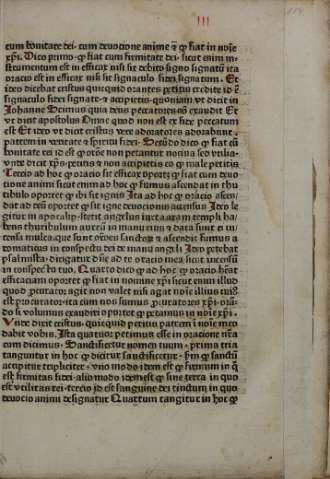 III
114
cum bonitate dei · cum deuocione anime ⁊ ꝙ fiat in noīe
xp̄i · Dico primo · ꝙ fiat cum firmitate dei · sicut enim in-
strumentum est in efficax nisi sit debito signo signatū ita
oracio est in efficax nisi sit signaculo fidei signatum · Et
ideo dicebat cristus quicquid orantes petitis credite id ē
signaculo fidei signate · ⁊ accipietis · quoniam vt dicit in
Johanne Scimus quia deus peccatores nō exaudit Et
vt dicit apostolus Omne quod non est ex fide peccatum
est Et ideo vt dicit cristus vere adoratores adorabunt
patrem in veritate ⁊ spiritu fidei · Secūdo dico ꝙ fiat cū
bonitate rei id est ꝙ orās non petantur nociua sed vtilia ·
vnde dicit xp̄s · petitis ⁊ non accipietis eo ꝙ male petitis
Tercio ad hoc ꝙ oracio sit efficax oportet ꝙ fiat cum deuo
cione animi sicut enim ad hoc ꝙ fumus ascendat in thu
ribulo oportet ꝙ ibi sit ignis Ita ad hoc ꝙ oracio ascen-
dat ad deū oportet ꝙ sit igne deuocionis accensus Ideo le
gitur in apocalip · stetit angelus iuxta aram templi ha-
bens thuribulum aureū in manu eius ⁊ data sunt ei in-
censa multa · que sunt orōnes sanctoꝝ ⁊ ascendit fumus a
romaticus in conspectu dei de manu angeli Ideo petebat
psalmista · dirigatur dn̄e ad te oracio mea sicut incensū
in conspectu tuo · Quarto dico ꝙ ad hoc ꝙ oracio habeat
efficaciam oportet ꝙ fiat in nomine xp̄i sicut enim illud
quod procurator agit non valet nisi agat noīe illius cuius
est procurator · ita cum nos sumus procuratores xp̄i · orā-
do si volumus exaudiri oportet ꝙ petamus in noīe xp̄i ·
Vnde dicit cristus · quicquid petitis patrem ī noīe meo
dabit vobis · Ista quatuor petimus esse in oratione nr̄a
cum dicimus · Sanctificetur nomen tuum · prima tria
tanguntur in hoc ꝙ dicitur sanctificetur · Nam ꝙ sanctū
accipitur tripliciter · vno modo idem est ꝙ firmum in q̄
est firmitas fidei · alio modo idem est ꝙ sine terra in quo
est vtilitas rei · tercio idē est sanguine dei tinctum in quo
deuocio animi designatur Quartum tangitur in hoc ꝙ